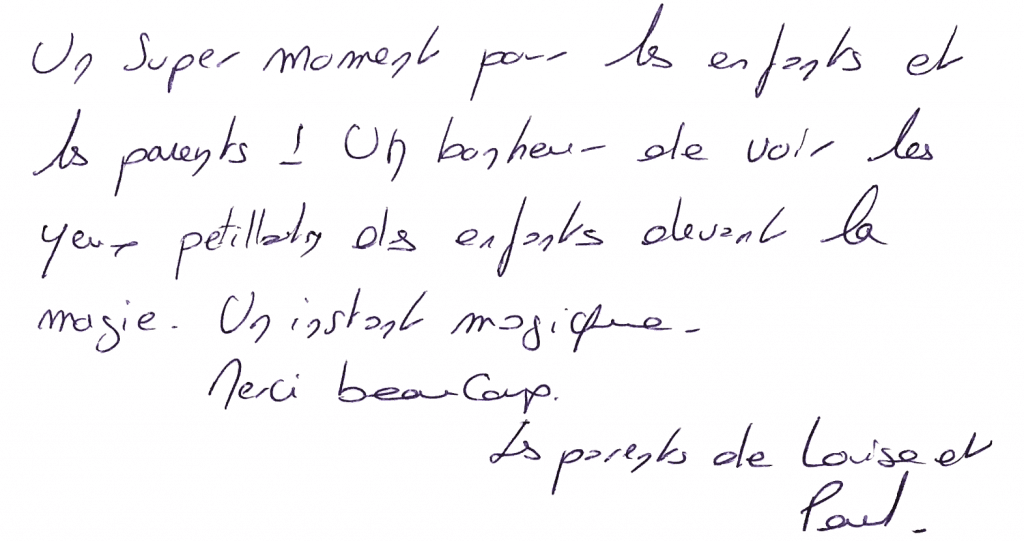 Un super moment pour les enfants et
les parents ! Un bonheur de voir les
yeux petillants des enfants devant la
magie. Un instant magique.
Merci beaucoup.
Les parents de Louise et
Paul.